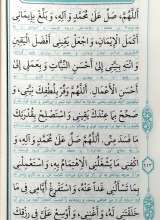 اَللّٰهُمَّ صَلِّ عَلٰى مُحَمَّدٍ وَ آلِهِ، وَ بَلِّغْ بِاِيمَانِي
اَكْمَلَ الْاِيمَانِ، وَ اجْعَلْ يَقِينِي اَفْضَلَ الْيَقِينِ
وَ انْتَهِ بِنِيَّتِي اِلٰى اَحْسَنِ النِّيَّاتِ وَ بِعَمَلِي اِلٰى
اَحْسَنِ الْاَعْمَالِ. اَللّٰهُمَّ وَفِّرْ بِلُطْفِكَ نِيَّتِي، وَ
صَحِّحْ بِمَا عِنْدَكَ يَقِينِي، وَ اسْتَصْلِحْ بِقُدْرَتِكَ
مَا فَسَدَ مِنِّي. اَللّٰهُمَّ صَلِّ عَلٰى مُحَمَّدٍ وَ آلِهِ، وَ
اكْفِنِي مَا يَشْغَلُنِي الْاِهْتِمَامُ بِهِ، وَ اسْتَعْمِلْنِي
بِمَا تَسْاَلُنِي غَدًا عَنْهُ، وَ اسْتَفْرِغْ اَيَّامِي فِي مَا
خَلَقْتَنِي لَهُ، وَ اَغْنِنِي، وَ اَوْسِعْ عَلَيَّ فِي رِزْقِكَ